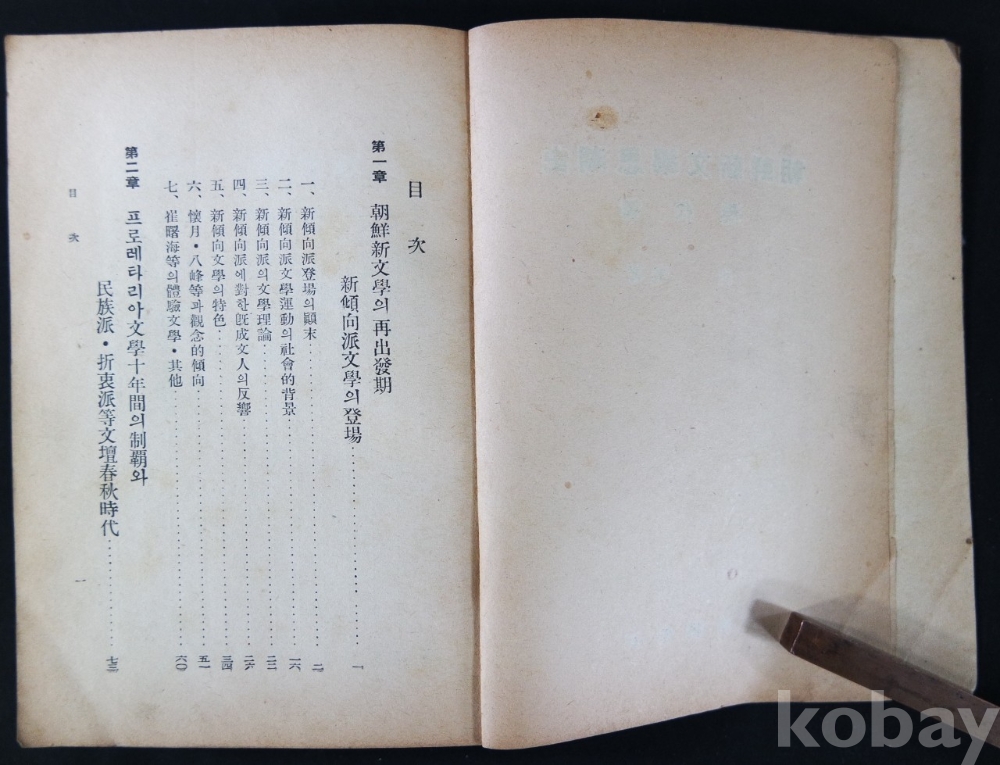 目次
第一章 朝鮮新文學의 再出發期
新傾向派文學의 登場 一
一、新傾向派登場의 顚末 二
二、新傾向派文學運動의 社會的背景 一六
三、新傾向派의 文學理論 二二
四、新傾向派에 對한 旣成文人의 反響 二六
五、新傾向文學의 特色 三四
六、懷月・八峰等과 觀念的傾向 五一
七、崔曙海等의 體驗文學・其他 六〇
第二章 프로레타리아文學十年間의 制覇와
民族派・折衷派等文壇春秋時代 七三
目次 一
kobay